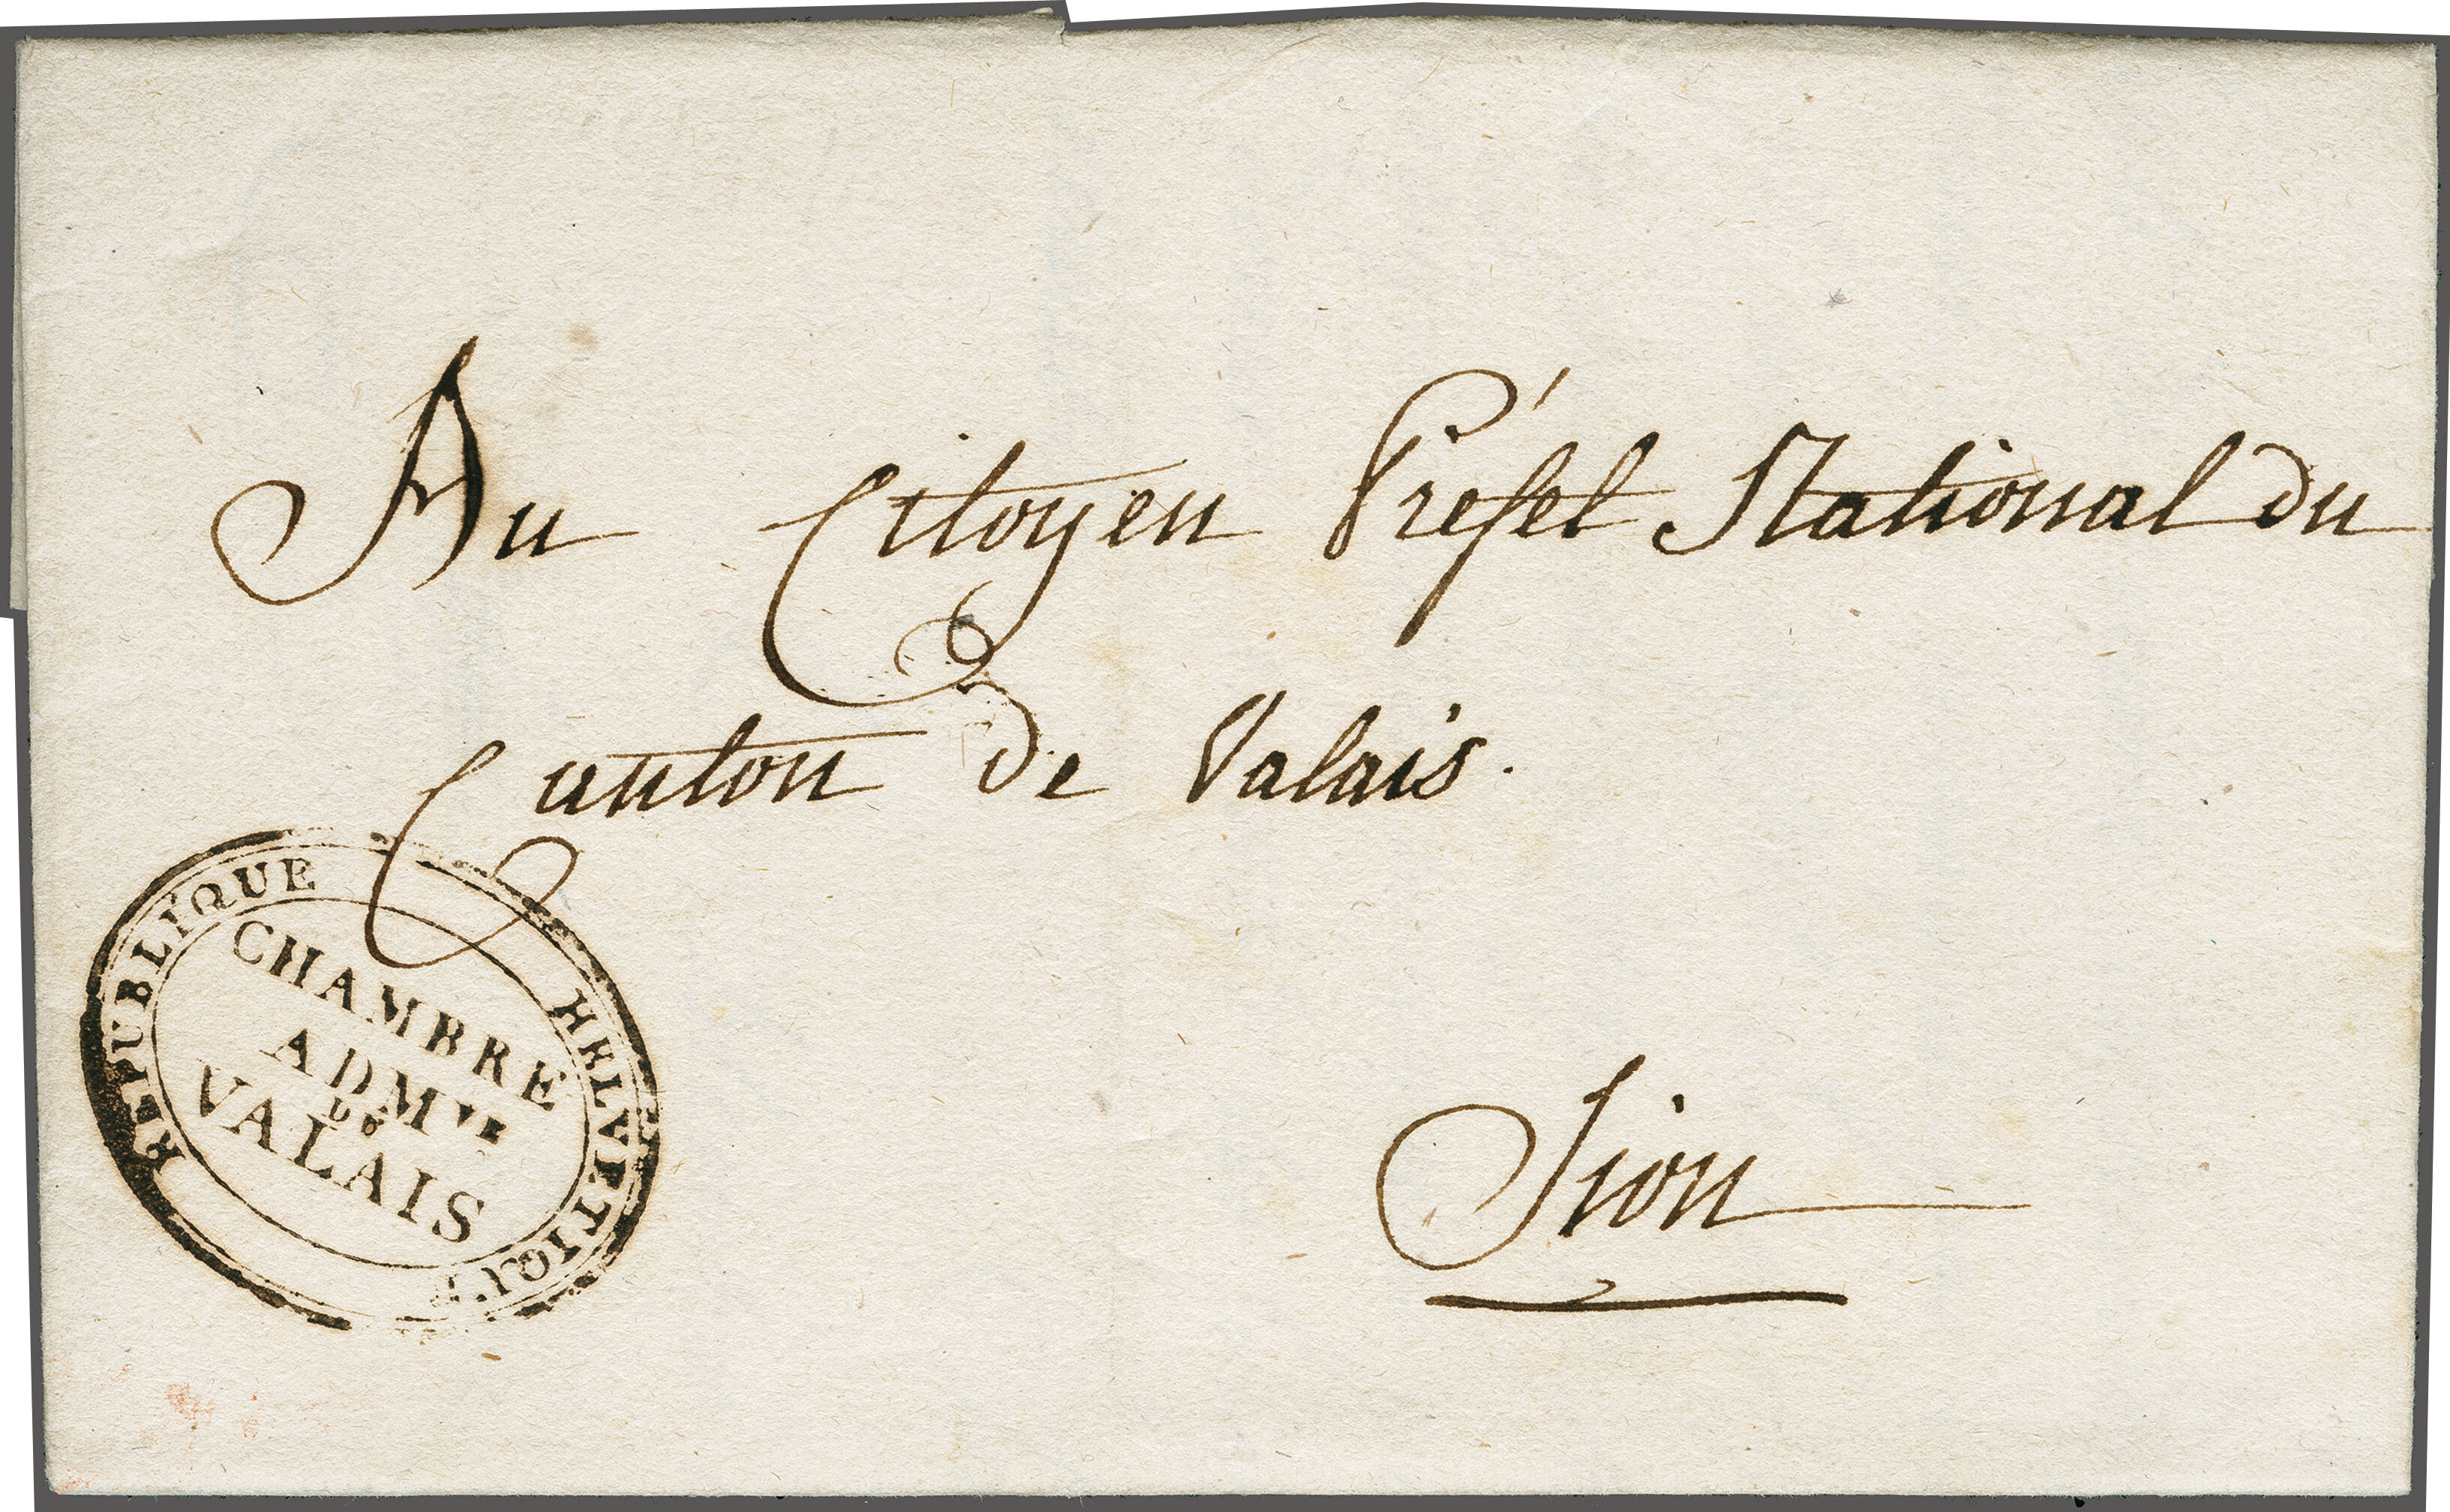 Au Citoyen Préfet National du
Canton de Valais.
RÉPUBLIQUE HELVETIQUE
CHAMBRE
ADMVE
DE
VALAIS
Sion